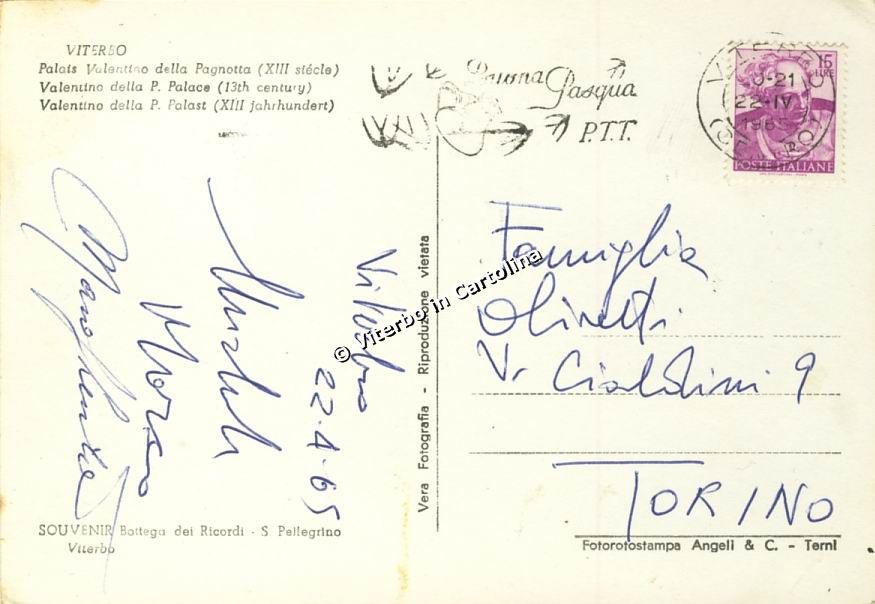 VITERBO
Palais Valentino della Pagnotta (XIII siécle)
Valentino della P. Palace (13th century)
Valentino della P. Palast (XIII jahrhundert)
Buona
Pasqua
P.T.T.
VITERBO
20-21
22-IV
1965
15
LIRE
POSTE ITALIANE
Viterbo
22.4.65
Famiglia
Olivetti
V. Cialdini 9
TORINO
© Viterbo in Cartolina
Vera Fotografia - Riproduzione vietata
SOUVENIR Bottega dei Ricordi - S. Pellegrino
Viterbo
Fotorotostampa Angeli & C. - Terni